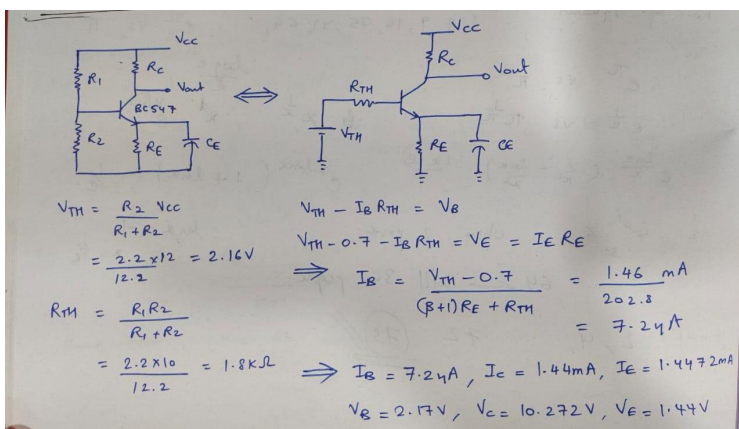 Vcc
Rc
R1
Vout
BC547
R2
RE
CE
⟺
Vcc
Rc
Vout
RTH
VTH
RE
CE
VTH = R2 Vcc / R1 + R2
= 2.2 x 12 / 12.2 = 2.16V
RTH = R1 R2 / R1 + R2
= 2.2 x 10 / 12.2 = 1.8KΩ
VTH - IB RTH = VB
VTH - 0.7 - IB RTH = VE = IE RE
⟹ IB = VTH - 0.7 / (β+1) RE + RTH = 1.46 / 202.8 mA
= 7.2μA
⟹ IB = 7.2μA, Ic = 1.44mA, IE = 1.4472mA
VB = 2.17V, Vc = 10.272V, VE = 1.44V